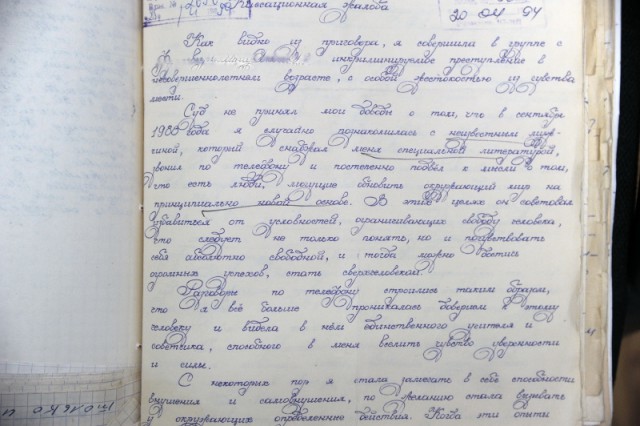 Кассационная жалоба
20 04 94
Как видно из приговора, я совершила в группе с
инкриминируемое преступление в
несовершеннолетнем возрасте, с особой жестокостью из чувства
мести.
Суд не принял мои доводы о том, что в сентябре
года я случайно познакомилась с неизвестным муж-
чиной, который снабжал меня специальной литературой,
звонил по телефону и постепенно подвёл к мысли о том,
что есть люди, могущие обновить окружающий мир на
принципиально новой основе. В этих целях он советовал
избавиться от условностей, ограничивающих свободу человека,
что следует не только понять, но и почувствовать
себя абсолютно свободной, и тогда можно достичь
огромных успехов, стать сверхчеловеком.
Разговоры по телефону строились таким образом,
что я всё больше проникалась доверием к этому
человеку и видела в нём единственного учителя и
советчика, способного в меня вселить чувство уверенности
и силы.
С некоторых пор я стала замечать в себе способности
внушения и самовнушения, по желанию стала вызывать
у окружающих определённые действия. Когда эти опыты
только и